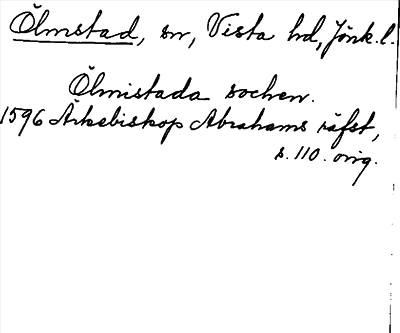 Ölmstad, sn, Vista hd, Jönk. l.
Ölmistada sochen.
1596 Ärkebiskop Abrahams räfst,
s. 110. orig.